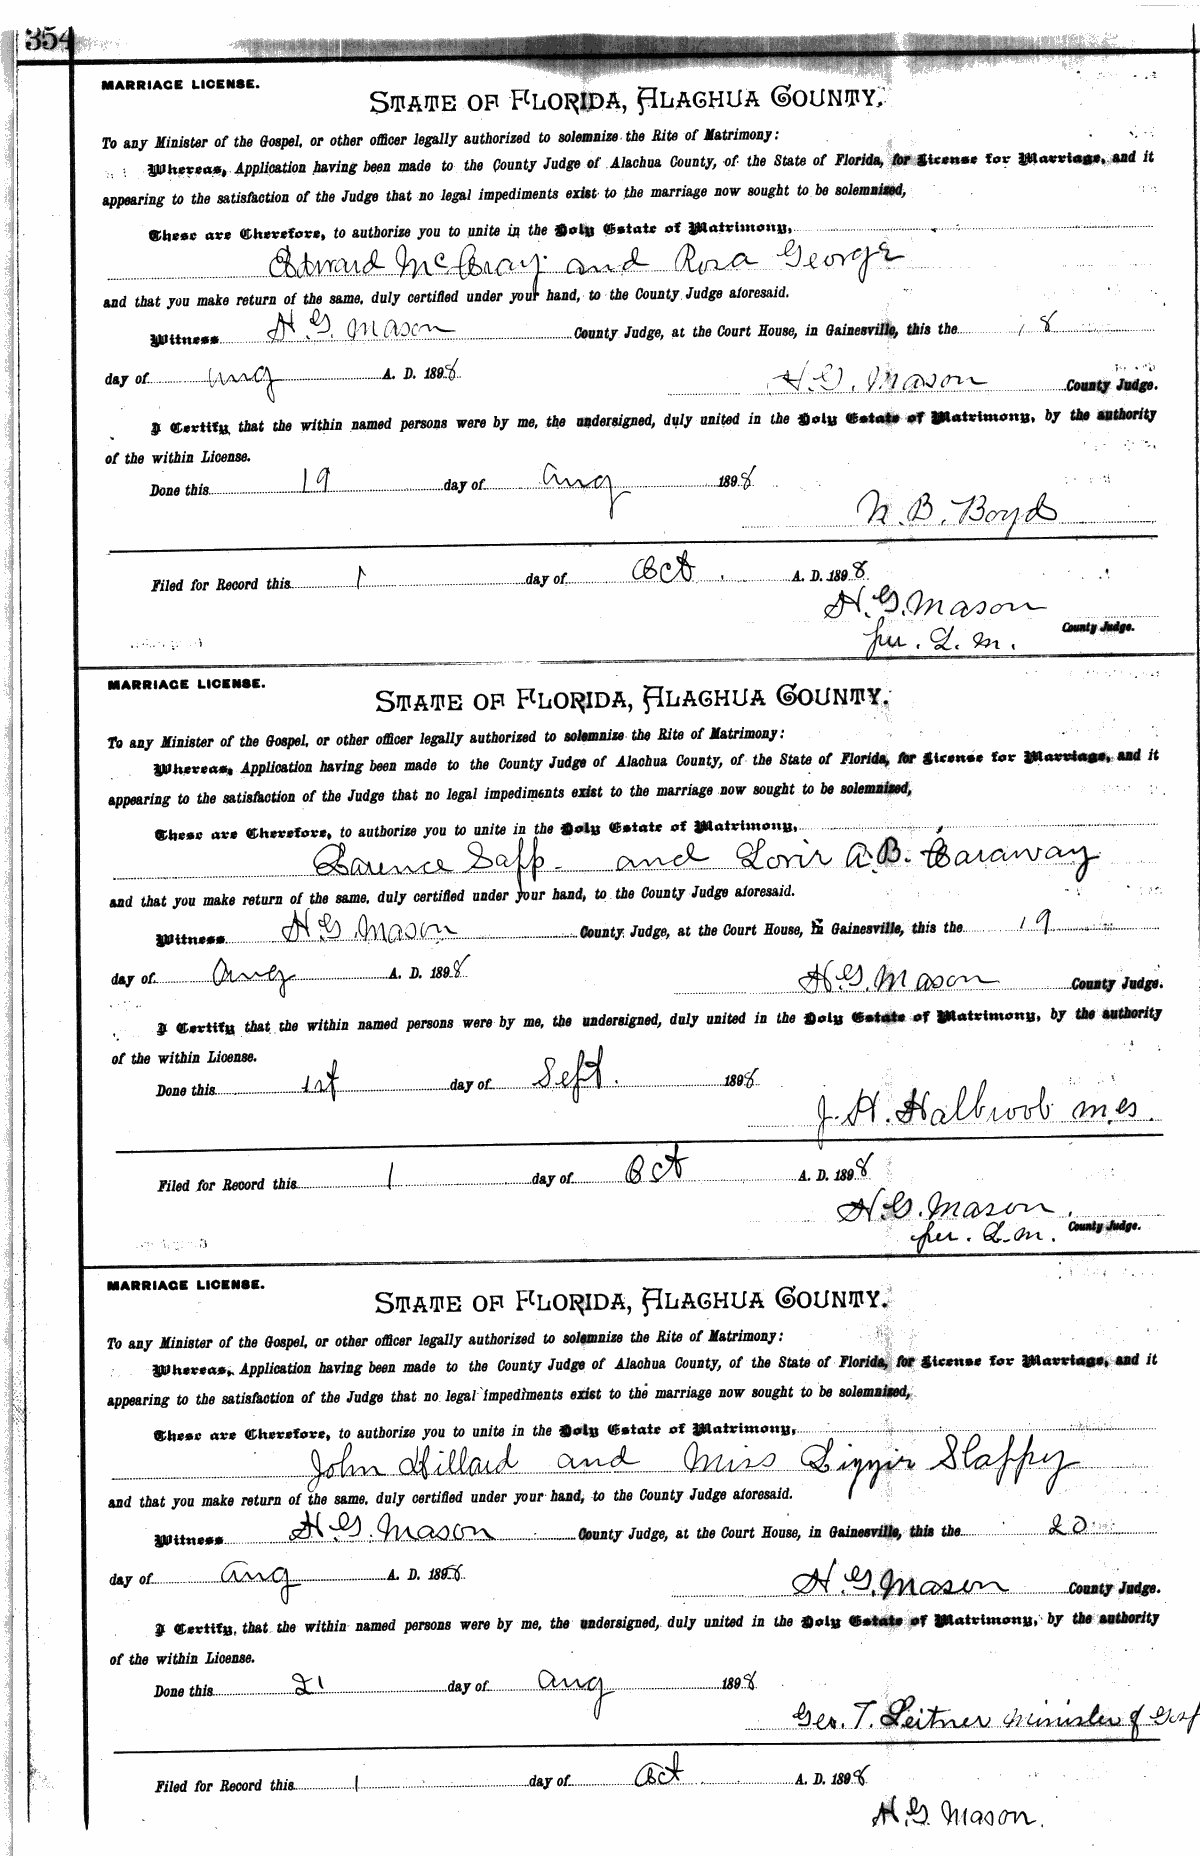 354
MARRIAGE LICENSE.
STATE OF FLORIDA, ALACHUA COUNTY.
To any Minister of the Gospel, or other officer legally authorized to solemnize the Rite of Matrimony:
Whereas, Application having been made to the County Judge of Alachua County, of the State of Florida, for License for Marriage, and it
appearing to the satisfaction of the Judge that no legal impediments exist to the marriage now sought to be solemnized,
These are Therefore, to authorize you to unite in the Holy Estate of Matrimony,
Edward McCray and Rosa George
and that you make return of the same, duly certified under your hand, to the County Judge aforesaid.
Witness H. G. Mason County Judge, at the Court House, in Gainesville, this the 18
day of Aug A. D. 1898
H. G. Mason County Judge.
I Certify, that the within named persons were by me, the undersigned, duly united in the Holy Estate of Matrimony, by the authority
of the within License.
Done this 19 day of Aug 1898
B. Boyd
Filed for Record this 1 day of Oct. A. D. 1898
H. G. Mason
County Judge.
per. L. M.
MARRIAGE LICENSE.
STATE OF FLORIDA, ALACHUA COUNTY.
To any Minister of the Gospel, or other officer legally authorized to solemnize the Rite of Matrimony:
Whereas, Application having been made to the County Judge of Alachua County, of the State of Florida, for License for Marriage, and it
appearing to the satisfaction of the Judge that no legal impediments exist to the marriage now sought to be solemnized,
These are Therefore, to authorize you to unite in the Holy Estate of Matrimony,
Sapp and A. B. Caraway
and that you make return of the same, duly certified under your hand, to the County Judge aforesaid.
Witness H. G. Mason County Judge, at the Court House, in Gainesville, this the 19
day of Aug A. D. 1898
H. G. Mason County Judge.
I Certify that the within named persons were by me, the undersigned, duly united in the Holy Estate of Matrimony, by the authority
of the within License.
Done this 1st day of Sept. 1898
J. H.
Filed for Record this 1 day of Oct A. D. 1898
H. G. Mason.
per. L. M. County Judge.
MARRIAGE LICENSE.
STATE OF FLORIDA, ALACHUA COUNTY.
To any Minister of the Gospel, or other officer legally authorized to solemnize the Rite of Matrimony:
Whereas, Application having been made to the County Judge of Alachua County, of the State of Florida, for License for Marriage, and it
appearing to the satisfaction of the Judge that no legal impediments exist to the marriage now sought to be solemnized,
These are Therefore, to authorize you to unite in the Holy Estate of Matrimony,
John Hillard and Miss Lizzie Slappy
and that you make return of the same, duly certified under your hand, to the County Judge aforesaid.
Witness H. G. Mason County Judge, at the Court House, in Gainesville, this the 20
day of Aug A. D. 1898
H. G. Mason County Judge.
I Certify, that the within named persons were by me, the undersigned, duly united in the Holy Estate of Matrimony, by the authority
of the within License.
Done this 21 day of Aug 1898
Geo. T. Leitner Minister of Gosp
Filed for Record this 1 day of Oct A. D. 1898
H. G. Mason.